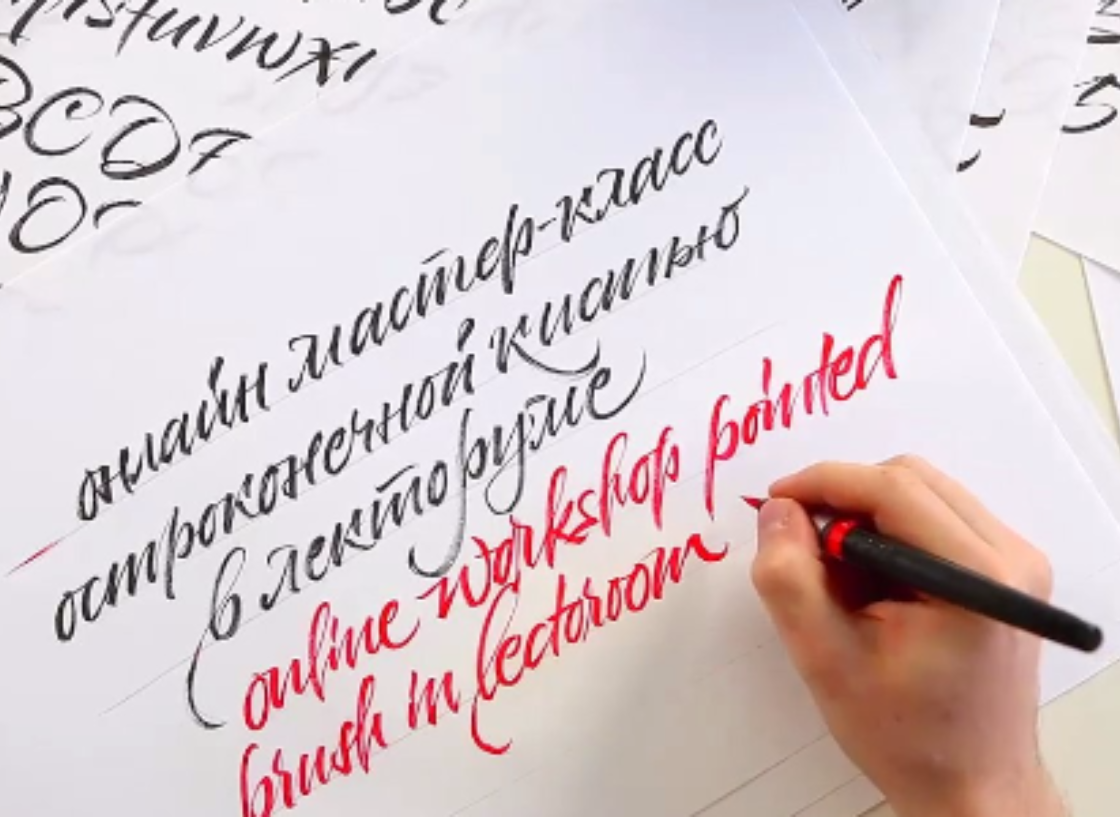 pqrstuvwxy
BCD7
онлайн мастер-класс
остроконечной кистью
в лекторуме
online workshop pointed
brush in lectoroom